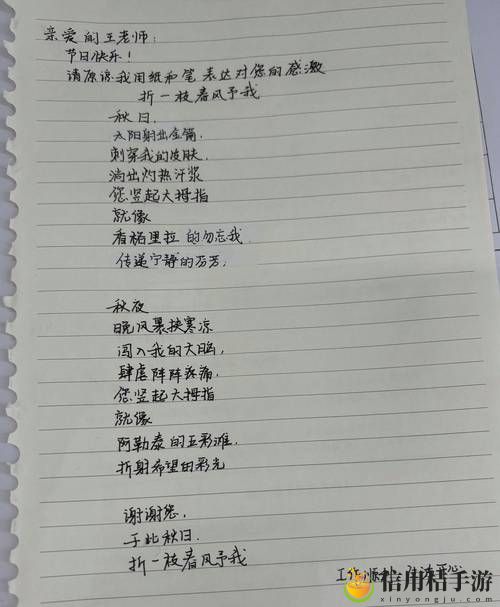 亲爱的王老师：
节日快乐！
请原谅我用纸和笔表达对您的感激
折一枝春风予我
秋日，
太阳射出金箭，
刺穿我的皮肤，
淌出灼热汗浆
您竖起大拇指
就像
香格里拉的勿忘我
传递宁静的芬芳，
秋夜
晚风裹挟寒凉
闯入我的大脑，
肆虐阵阵疼痛，
您竖起大拇指
就像
阿勒泰的五彩滩，
折射希望的彩光
谢谢您，
于此秋日，
折一枝春风予我
工作顺
开心
信用桔手游
xinyongju.com